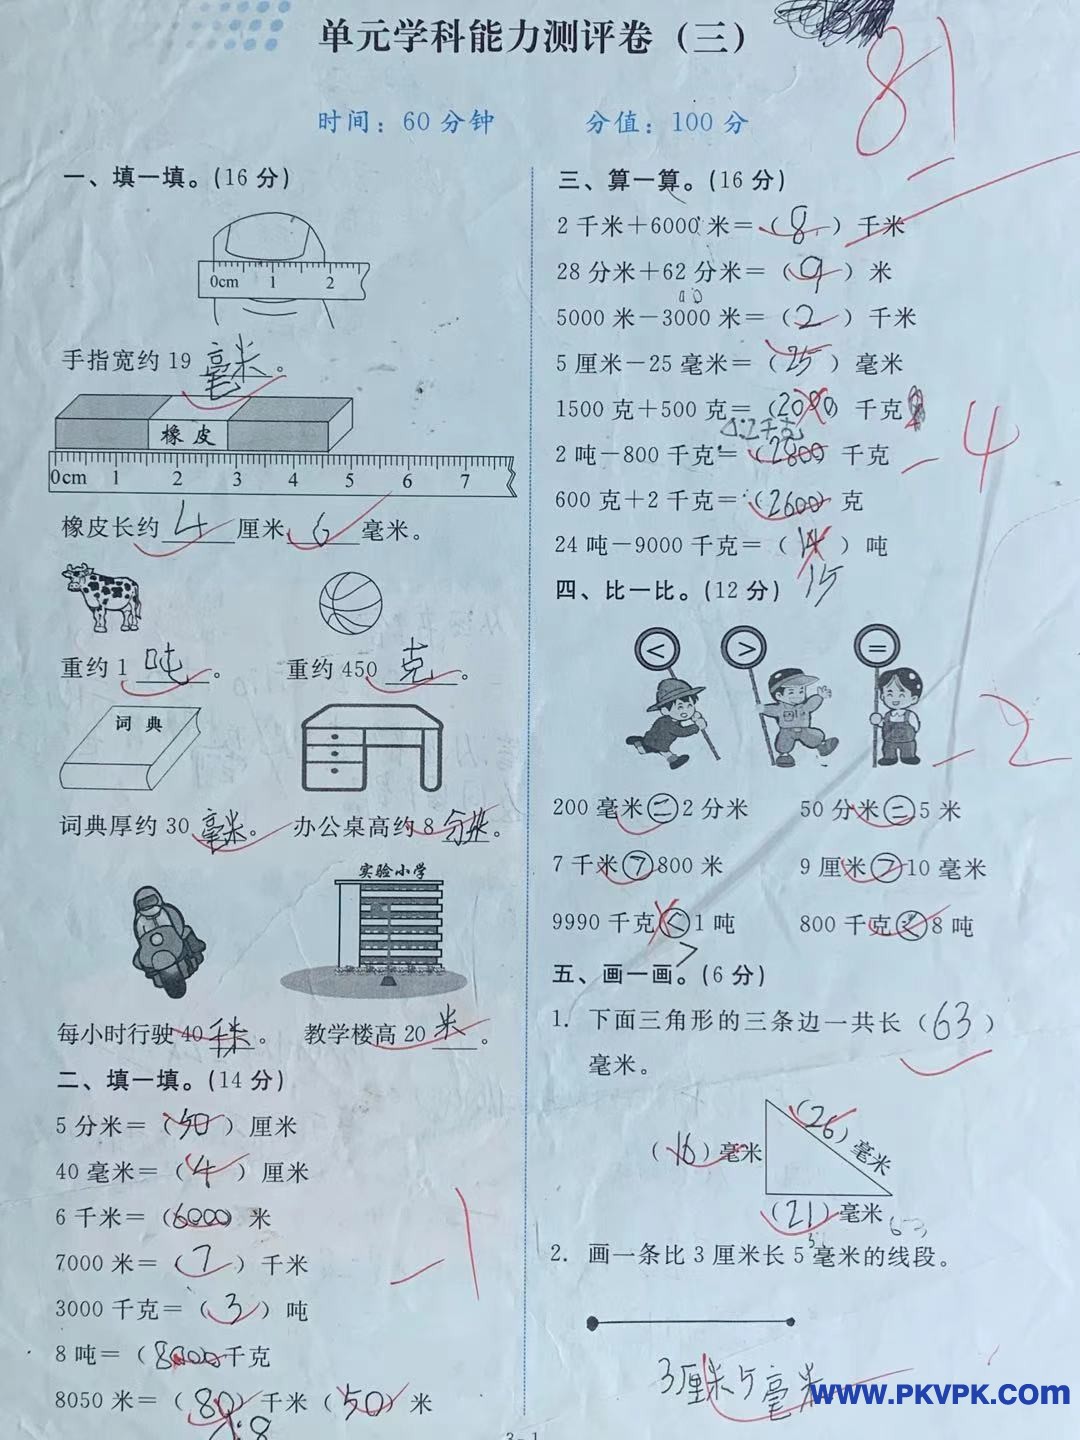 单元学科能力测评卷（三）
81
时间：60分钟 分值：100分
一、填一填。（16分）
0cm 1 2
手指宽约19毫米。
橡皮
0cm 1 2 3 4 5 6 7
橡皮长约4厘米6毫米。
重约1吨。 重约450克。
词典
词典厚约30毫米。 办公桌高约8分米。
实验小学
每小时行驶40千米。 教学楼高20米。
二、填一填。（14分）
5分米＝（50）厘米
40毫米＝（4）厘米
6千米＝（6000）米
7000米＝（7）千米
-1
3000千克＝（3）吨
8吨＝（8000千克
8050米＝（80）千米（50）米
8
三、算一算。（16分）
2千米＋6000米＝（8）千米
28分米＋62分米＝（9）米
5000米－3000米＝（2）千米
5厘米－25毫米＝（25）毫米
1500克＋500克＝（2000 千克
2千克
2吨－800千克＝（2800）千克
-4
600克＋2千克＝（2600）克
24吨－9000千克＝（14）吨
15
四、比一比。（12分）
< > =
-2
200毫米=2分米 50分米=5米
7千米>800米 9厘米>10毫米
9990千克<1吨 800千克<8吨
>
五、画一画。（6分）
1. 下面三角形的三条边一共长（63）
毫米。
（26）毫米
（16）毫米
（21）毫米
63
2. 画一条比3厘米长5毫米的线段。
3厘米5毫米
www.PKVPK.com
3-1